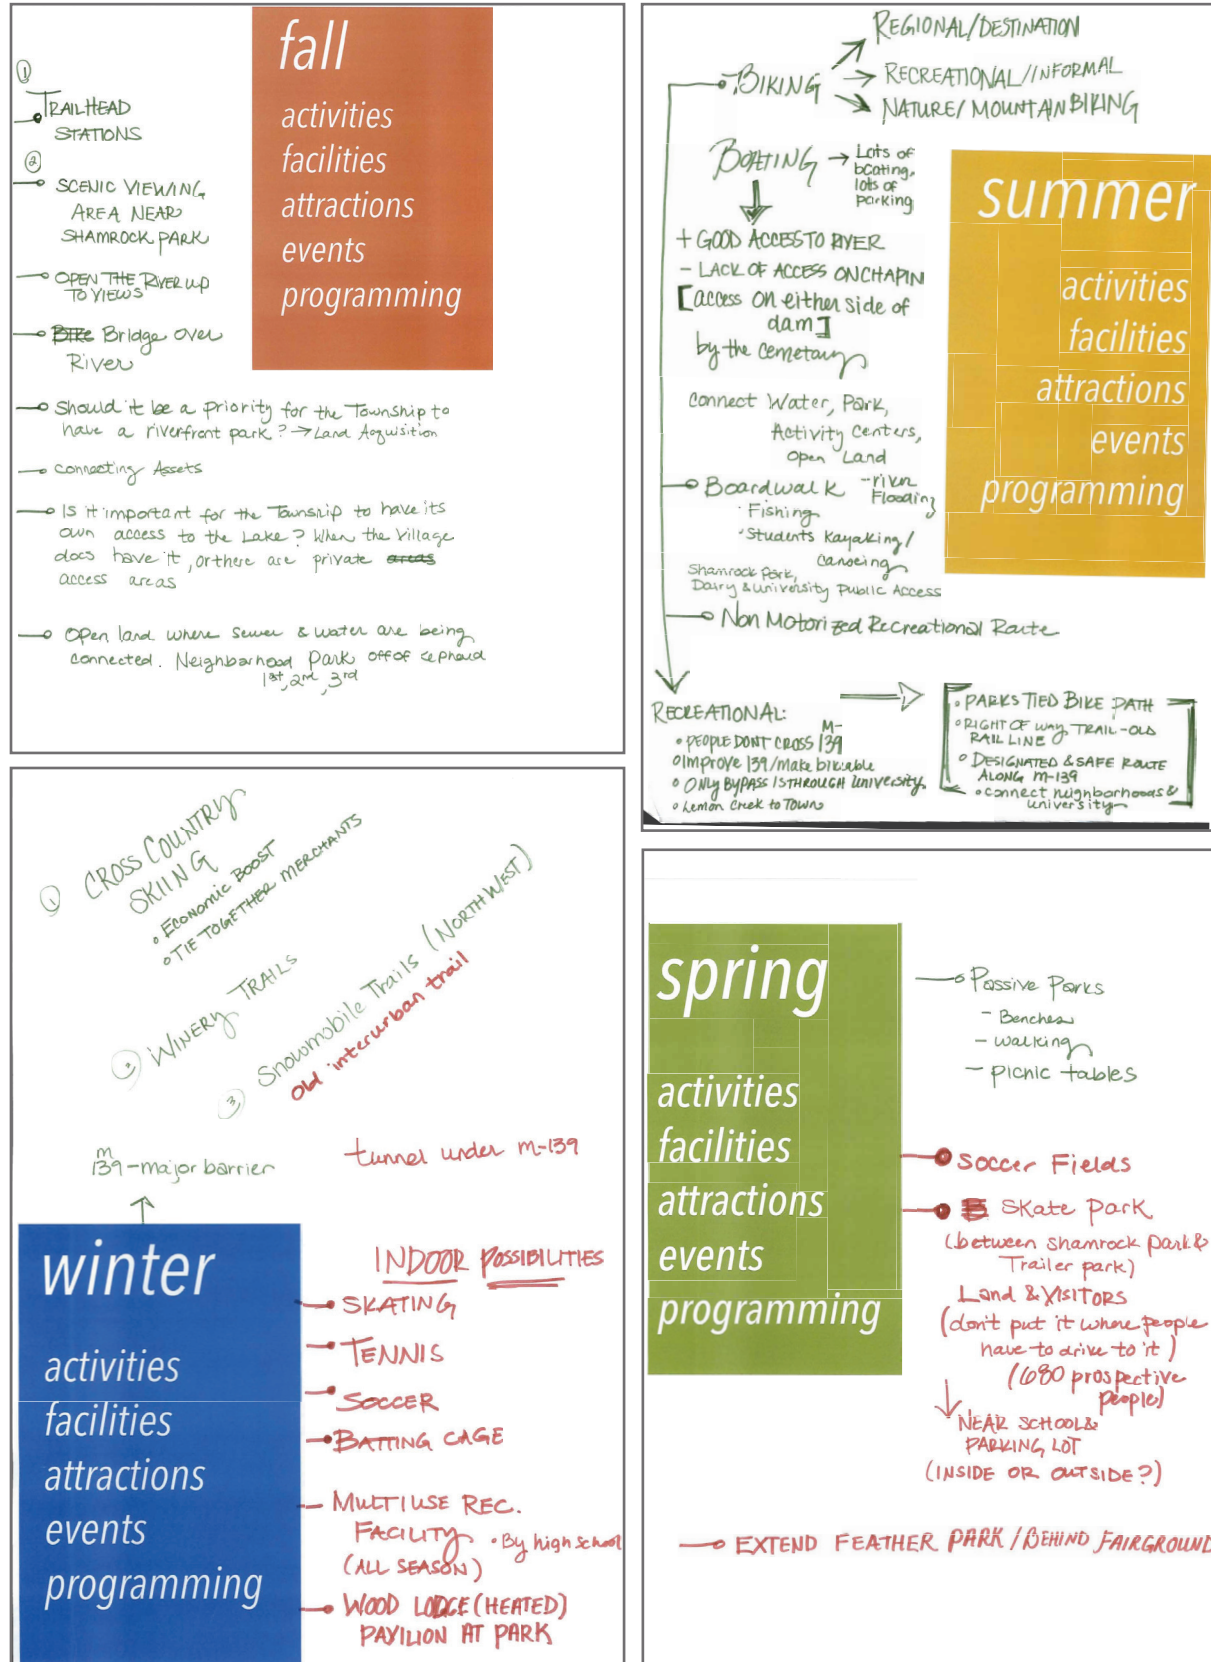 fall
activities
facilities
attractions
events
programming
1
TRAILHEAD
STATIONS
2
SCENIC VIEWING
AREA NEAR
SHAMROCK PARK
OPEN THE RIVER UP
TO VIEWS
Bike Bridge over
River
Should it be a priority for the Township to
have a riverfront park? → Land Acquisition
Connecting Assets
Is it important for the Township to have its
own access to the Lake? When the Village
does have it, or there are private areas
access areas
Open land where sewer & water are being
connected. Neighborhood Park off of
1st, 2nd, 3rd
REGIONAL/DESTINATION
BIKING → RECREATIONAL/INFORMAL
NATURE/MOUNTAIN BIKING
BOATING → Lots of
boating,
lots of
parking
+ GOOD ACCESS TO RIVER
- LACK OF ACCESS ON CHAPIN
[access on either side of
dam]
by the cemetary
connect Water, Park,
Activity Centers,
Open Land
Boardwalk -- river
Flooding
· Fishing
· Students Kayaking/
canoeing
Shamrock Park,
Dairy & University Public Access
Non Motorized Recreational Route
summer
activities
facilities
attractions
events
programming
RECREATIONAL:
• PEOPLE DONT CROSS M-139
• Improve 139/make bikable
• ONLY BYPASS IS THROUGH University
• Lemon Creek to TOWN
• PARKS TIED BIKE PATH
• RIGHT OF WAY TRAIL-OLD
RAIL LINE
• DESIGNATED & SAFE ROUTE
ALONG M-139
• connect neighborhoods &
university
1 CROSS COUNTRY
SKIING
• ECONOMIC BOOST
• TIE TOGETHER MERCHANTS
2 WINERY TRAILS
3 Snowmobile Trails (NORTHWEST)
old interurban trail
M
139-major barrier
tunnel under M-139
winter
activities
facilities
attractions
events
programming
INDOOR POSSIBILITIES
SKATING
TENNIS
SOCCER
BATTING CAGE
MULTIUSE REC.
FACILITY • By high school
(ALL SEASON)
WOOD LODGE (HEATED)
PAVILION AT PARK
spring
activities
facilities
attractions
events
programming
Passive Parks
- Benches
- walking
- picnic tables
Soccer Fields
Skate Park
(between shamrock park &
Trailer park)
Land & VISITORS
(don't put it where people
have to drive to it)
(680 prospective
people)
NEAR SCHOOL &
PARKING LOT
(INSIDE OR OUTSIDE?)
EXTEND FEATHER PARK / BEHIND FAIRGROUND